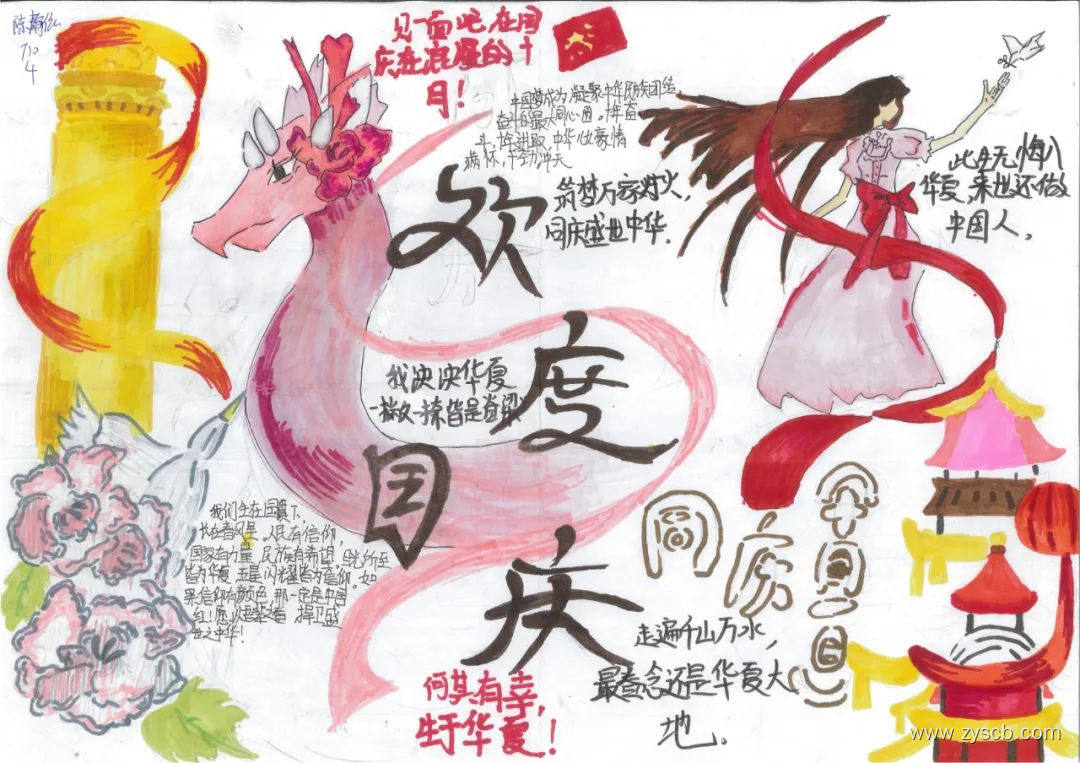 710
4
见一面吧,在国
庆在浪漫的十
月!
中国梦成为凝聚中华民族团结
奋斗的最大同心圆。十年奋
斗,进取,中华儿女豪情
满怀,干劲冲天
筑梦万家灯火,
同庆盛世中华.
此生无悔入
华夏,来世还做
中国人。
欢
度
国
庆
我泱泱华夏
一撇一捺皆是脊梁
我们生在国旗下,
长在春风里。人民有信仰,
国家有力量,民族有希望,目光所至
皆为华夏,五星闪耀皆为信仰。如
果信仰有颜色,那一定是中国
红!愿以吾辈之青 捍卫盛
世之中华!
同庆
中国
走遍千山万水,
最眷念还是华夏大
地.
何其有幸,
生于华夏!
www.zyscb.com